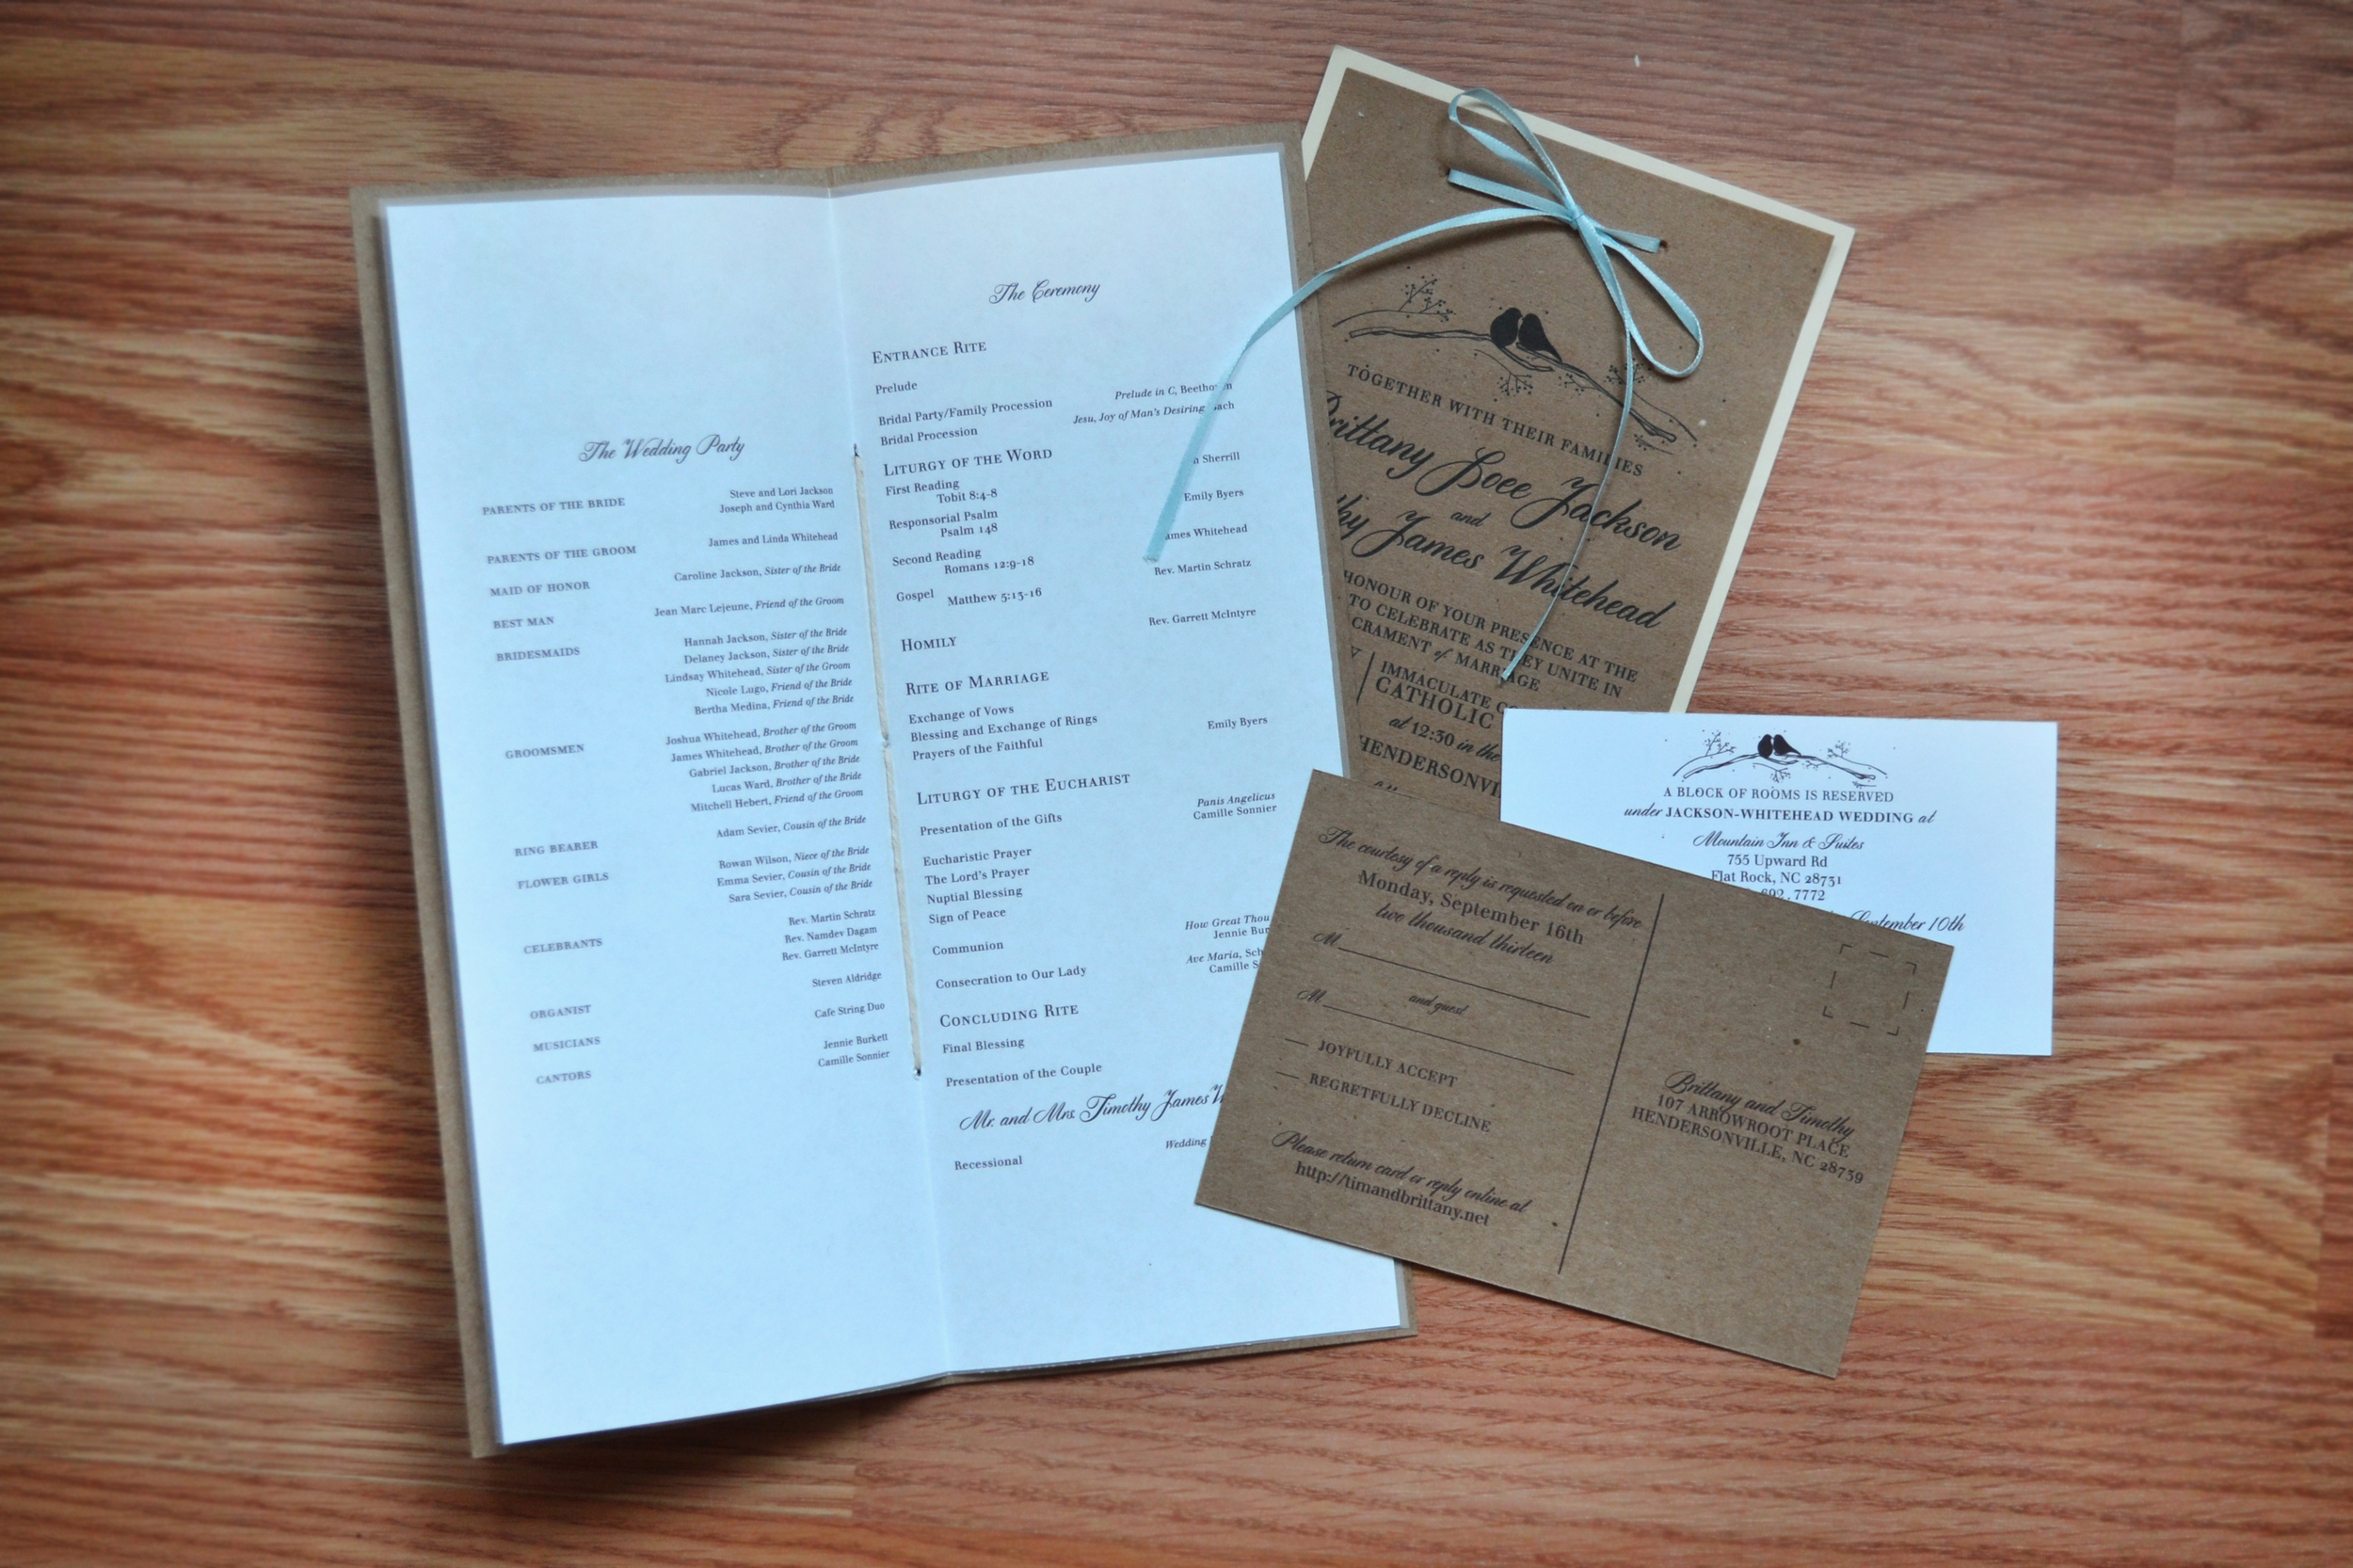 The Wedding Party
PARENTS OF THE BRIDE
Steve and Lori Jackson
Joseph and Cynthia Ward
PARENTS OF THE GROOM
James and Linda Whitehead
MAID OF HONOR
Caroline Jackson, Sister of the Bride
BEST MAN
Jean Marc Lejeune, Friend of the Groom
BRIDESMAIDS
Hannah Jackson, Sister of the Bride
Delaney Jackson, Sister of the Bride
Lindsay Whitehead, Sister of the Groom
Nicole Lugo, Friend of the Bride
Bertha Medina, Friend of the Bride
GROOMSMEN
Joshua Whitehead, Brother of the Groom
James Whitehead, Brother of the Groom
Gabriel Jackson, Brother of the Bride
Lucas Ward, Brother of the Bride
Mitchell Hebert, Friend of the Groom
RING BEARER
Adam Sevier, Cousin of the Bride
FLOWER GIRLS
Rowan Wilson, Niece of the Bride
Emma Sevier, Cousin of the Bride
Sara Sevier, Cousin of the Bride
CELEBRANTS
Rev. Martin Schratz
Rev. Namdev Dagam
Rev. Garrett McIntyre
ORGANIST
Steven Aldridge
MUSICIANS
Cafe String Duo
CANTORS
Jennie Burkett
Camille Sonnier
The Ceremony
ENTRANCE RITE
Prelude
Bridal Party/Family Procession
Prelude in C, Beethoven
Bridal Procession
Jesu, Joy of Man's Desiring
LITURGY OF THE WORD
First Reading
Tobit 8:4-8
Sherrill
Responsorial Psalm
Psalm 148
Emily Byers
Second Reading
Romans 12:9-18
James Whitehead
Gospel
Matthew 5:13-16
Rev. Martin Schratz
HOMILY
Rev. Garrett McIntyre
RITE OF MARRIAGE
Exchange of Vows
Blessing and Exchange of Rings
Prayers of the Faithful
Emily Byers
LITURGY OF THE EUCHARIST
Presentation of the Gifts
Panis Angelicus
Camille Sonnier
Eucharistic Prayer
The Lord's Prayer
Nuptial Blessing
Sign of Peace
Communion
How Great Thou
Jennie
Consecration to Our Lady
Ave Maria,
Camille
CONCLUDING RITE
Final Blessing
Presentation of the Couple
Mr. and Mrs. Timothy James
Recessional
Wedding
TOGETHER WITH THEIR FAMILIES
Brittany Loee Jackson
and
James Whitehead
HONOUR OF YOUR PRESENCE AT THE
TO CELEBRATE AS THEY UNITE IN
MARRIAGE
IMMACULATE
CATHOLIC
at 12:30 in the
A BLOCK OF ROOMS IS RESERVED
under JACKSON-WHITEHEAD WEDDING at
Mountain Inn & Suites
755 Upward Rd
Flat Rock, NC 28731
692.7772
September 10th
The courtesy of a reply is requested on or before
Monday, September 16th
two thousand thirteen
M
and guest
M
JOYFULLY ACCEPT
REGRETFULLY DECLINE
Please return card or reply online at
http://timandbrittany.net
Brittany and Timothy
107 ARROWROOT PLACE
HENDERSONVILLE, NC 28739